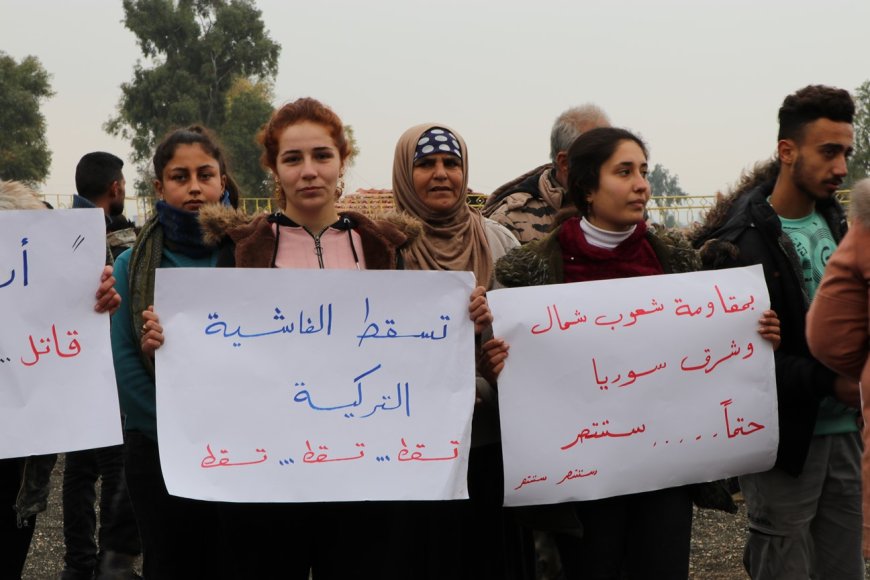 تسقط الفاشية
التركية
تسقط ... تسقط ... تسقط
بمقاومة شعوب شمال
وشرق سوريا
حتماً ..... ستنتصر
ستنتصر ستنتصر
قاتل ..